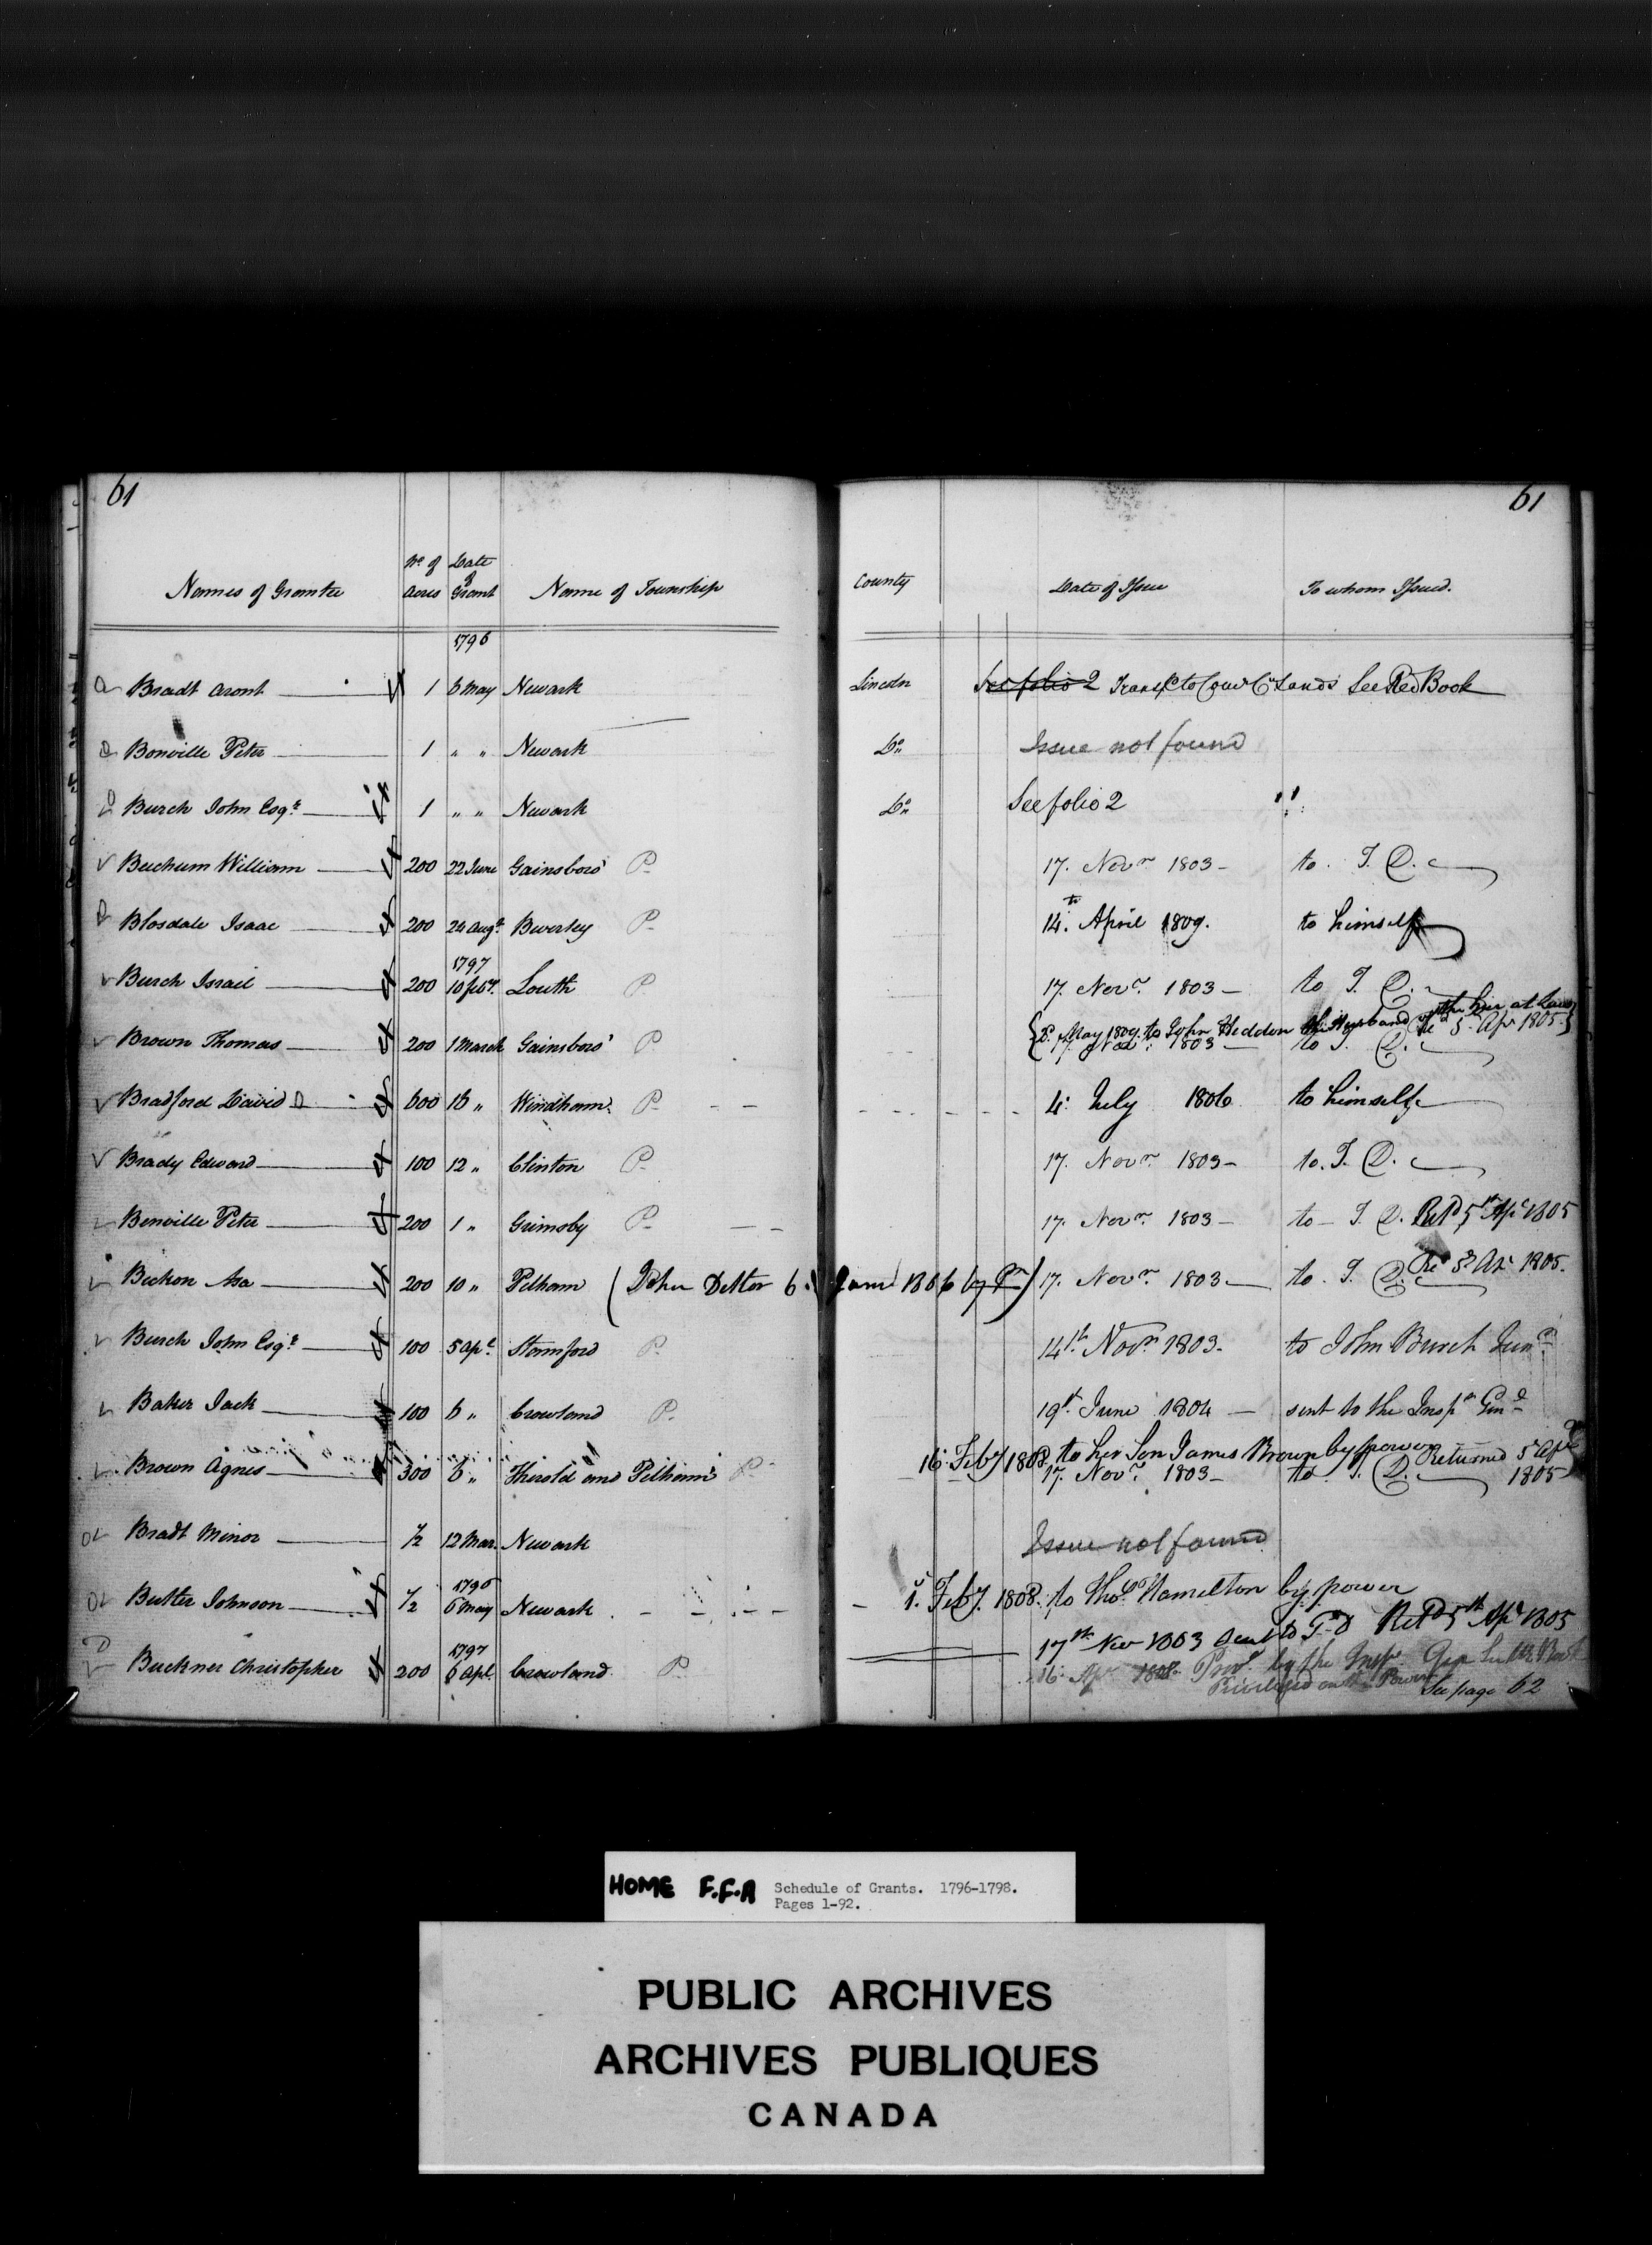 61
61
Names of Grantee
No of Acres
Date of Grant
Name of Township
County
Date of Issue
To whom Issued.
1796
Bradt Aront 1 6 May Newark Lincoln See folio 2 Transfd to Lands See Red Book
Bonville Peter 1 " " Newark Do Issue not found
Burch John Esqr 1 " " Newark Do See folio 2 "
Beechum William 200 22 June Gainsboro' P 17. Novr 1803 - to J. D.
Blosdale Isaac 200 24 Augt Beverley P 14th April 1809. to himself
1797
Burch Israel 200 10 feby. Louth P 17. Novr. 1803 - to J. D.
May 1809. to John Heddon the Husband of the heir at Law
Brown Thomas 200 1 March Gainsboro' P 17. Novr 1803 - to J. D. Red 5 Apr 1805.
Bradford David D 600 16 " Windham P - - 4. July 1806 to himself
Brady Edward 100 12 " Clinton P 17. Novr. 1803 - to. J. D.
Benville Peter 200 1 " Grimsby P - - 17. Novr. 1803 - to - J. D. Retd 5th Apl 1805
Beckon Asa 200 10 " Pelham (John Dettor 6. June 1806 by Pr) 17. Novr. 1803 - to. J. D. Re 5 Ap. 1805.
Burch John Esqr 100 5 Apl. Stamford P. 14th Novr 1803. to John Burch Junr
Baker Jack 100 6 " Crowland P. 19th June 1804 - sent to the Inspr Genl
16. Feby 1808. to her Son James Brown by power Returned 5 Apl
Brown Agnes 300 6 " Thorold and Pelham P 17. Novr. 1803 - to J. D. 1805
Bradt Minor ½ 12 Mar. Newark Issue not found
1796
Butler Johnson ½ 6 May Newark - - - - 1. Feby. 1808. to Thos. Hamelton by power
1797
17th Nov 1803 sent to J D Retd 5th Apl 1805
Buckner Christopher 200 6 Apl. Crowland P 16. Apr 1808. by the Inspr Gen
Privileged on the Power See page 62
HOME F.F.A
Schedule of Grants. 1796-1798.
Pages 1-92.
PUBLIC ARCHIVES
ARCHIVES PUBLIQUES
CANADA